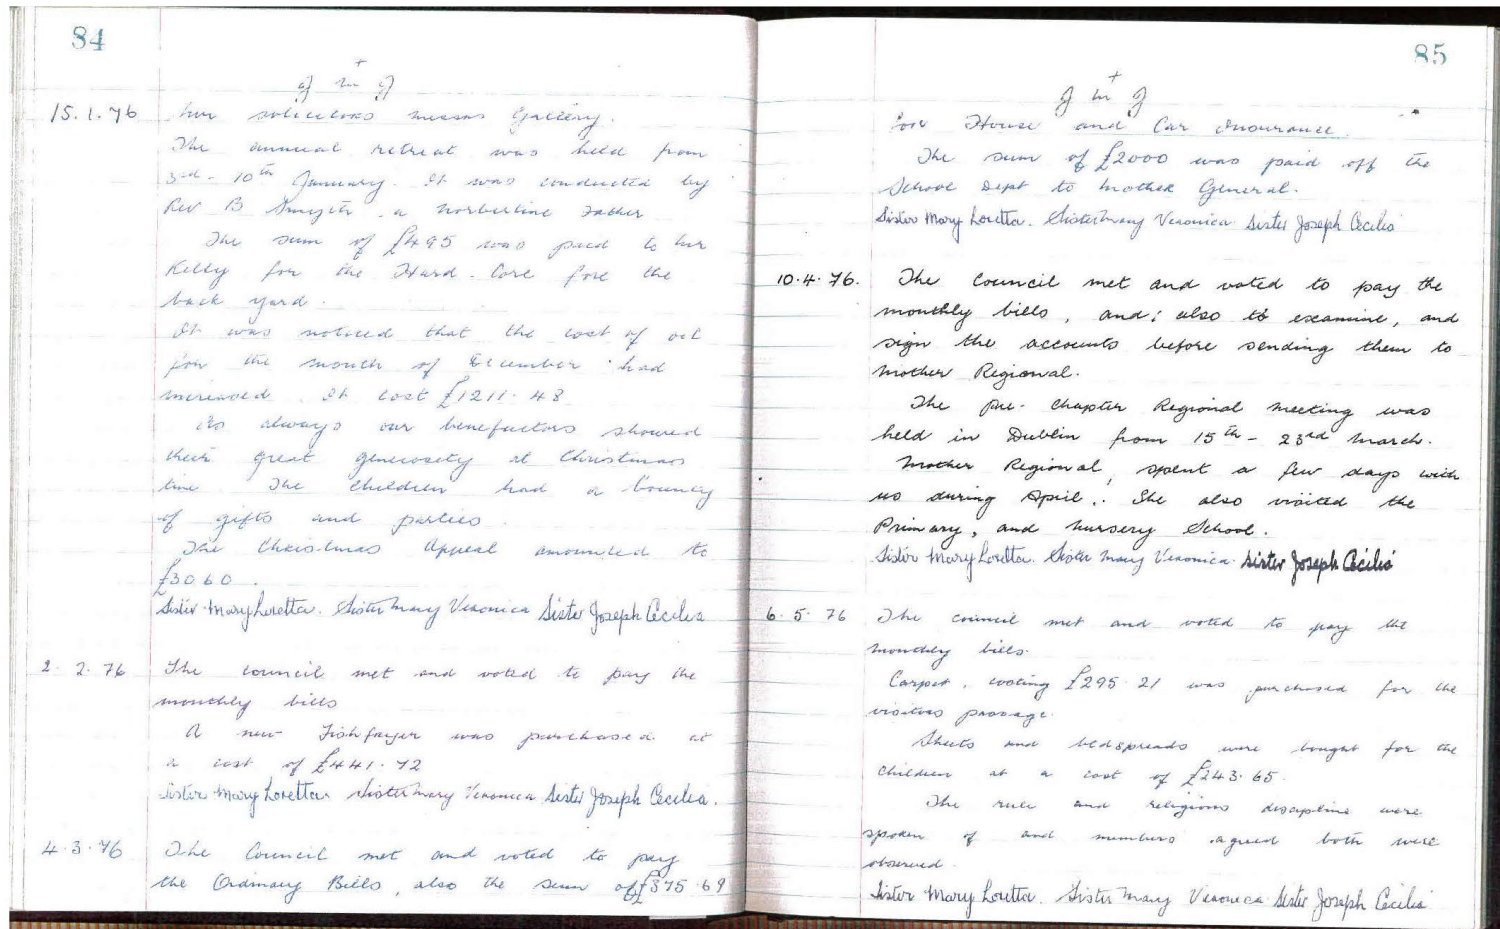 84
+
J M J
15.1.76 her solicitors messrs Gallery.
The annual retreat was held from
3rd - 10th January. It was conducted by
Rev B Smyth, a Norbertine Father
The sum of £495 was paid to Mr
Kelly for the Hard-Core fore the
back yard.
It was noticed that the cost of oil
for the month of December had
increased. It cost £1211.48
As always our benefactors showed
their great generosity at Christmas
time The children had a bounty
of gifts and parties
The Christmas Appeal amounted to
£3060.
Sister Mary Loretta. Sister Mary Veronica Sister Joseph Cecilia
2.2.76 The council met and voted to pay the
monthly bills
A new Fish fryer was purchased at
a cost of £441.72
Sister Mary Loretta. Sister Mary Veronica Sister Joseph Cecilia.
4.3.76 The Council met and voted to pay
the Ordinary Bills, also the sum of £375.69
85
+
J M J
for House and Car insurance.
The sum of £2000 was paid off the
School Dept to Mother General.
Sister Mary Loretta. Sister Mary Veronica Sister Joseph Cecilia
10.4.76. The Council met and voted to pay the
monthly bills, and; also to examine, and
sign the accounts before sending them to
Mother Regional.
The pre-chapter Regional meeting was
held in Dublin from 15th - 23rd March.
Mother Regional, spent a few days with
us during April.. She also visited the
Primary, and Nursery School.
Sister Mary Loretta. Sister Mary Veronica. Sister Joseph Cecilia
6.5.76 The council met and voted to pay the
monthly bills.
Carpet, costing £295.21 was purchased for the
visitors passage.
Sheets and bedspreads were bought for the
children at a cost of £243.65.
The rule and religious discipline were
spoken of and members agreed both were
observed.
Sister Mary Loretta. Sister Mary Veronica Sister Joseph Cecilia